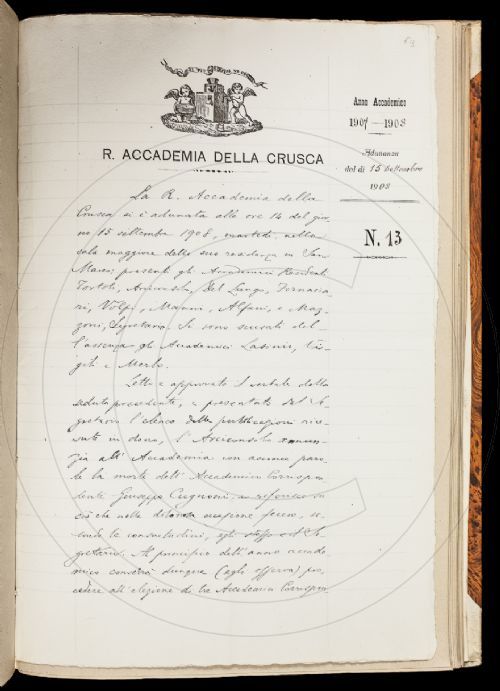 69
R. ACCADEMIA DELLA CRUSCA
Anno Accademico
1907-1908
Adunanza
del dì 15 Settembre
1908
N. 13
La R. Accademia della
Crusca si è adunata alle ore 14 del gior
no 15 settembre 1908, martedì, nella
sala maggiore della sua residenza in San
Marco; presenti gli Accademici Residenti
Tortoli, Arciconsolo, Del Lungo, Fornacia
ri, Volpi, Manni, Alfani, e Maz
zoni, Segretario. Si sono scusati del
l'assenza gli Accademici Lasinio, Vi
giti e Merlo.
Letto e approvato il verbale della
seduta precedente, e presentato dal Se
gretario l'elenco delle pubblicazioni rice
vute in dono, l'Arciconsolo annun
zia all'Accademia con acconce paro
le la morte dell'Accademico Corrispon
dente Giuseppe Cugnoni,
ciò che nella dolorosa occasione fecero, se
condo le consuetudini, egli stesso e il Se
gretario. Al principio dell'anno accade
mico converrà dunque (egli osserva) pro
cedere all'elezione di tre Accademici Corrispon